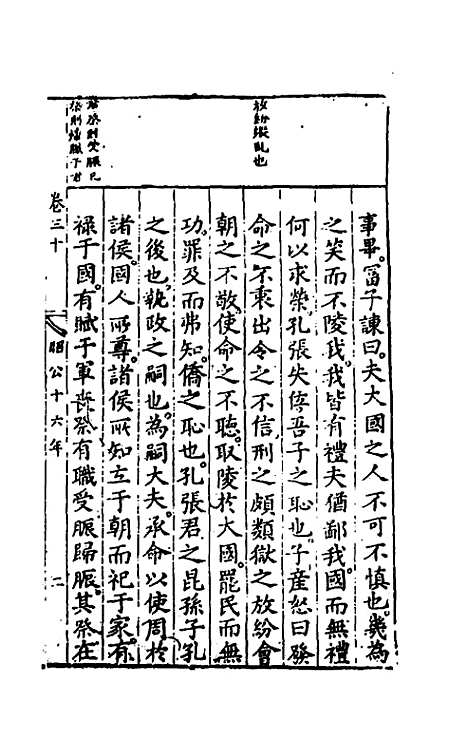 放紛縱亂也
事畢。富子諫曰。夫大國之人不可不慎也。幾為
之笑而不陵我。我皆有禮夫猶鄙我。國而無禮
何以求榮。孔張失位吾子之恥也。子產怒曰發
命之不衷出令之不信刑之頗類獄之放紛會
朝之不敬。使命之不聽。取陵於大國。罷民而無
功。罪及而弗知。僑之恥也。孔張君之昆孫子孔
之後也。執政之嗣也。為嗣大夫。承命以使周於
諸侯。國人所尊。諸侯所知立于朝而祀于家。有
祿于國。有賦于軍喪祭有職受脤歸脤。其祭在
卷三十 昭公十六年 二